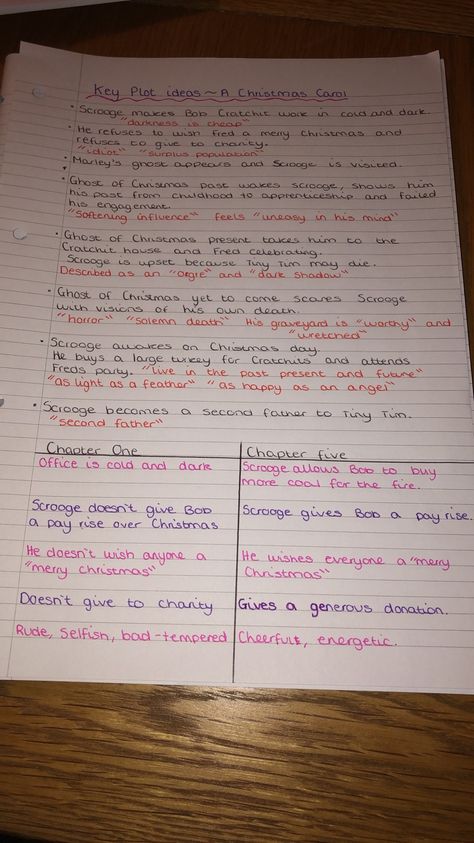 Key Plot ideas ~ A Christmas Carol
• Scrooge makes Bob Cratchit work in cold and dark.
"darkness is cheap"
• He refuses to wish Fred a merry Christmas and
refuses to give to charity.
"idiot" "surplus population"
• Marley's ghost appears and Scrooge is visited.
• Ghost of Christmas past wakes scrooge, shows him
his past from childhood to apprenticeship and failed
his engagement.
"Softening influence" feels "uneasy in his mind"
• Ghost of Christmas present takes him to the
Cratchit house and Fred celebrating.
Scrooge is upset because Tiny Tim may die.
Described as an "orgie" and "dark shadow"
• Ghost of Christmas yet to come scares Scrooge
with visions of his own death.
"horror" "solemn death" His graveyard is "worthy" and
"wretched"
• Scrooge awakes on Christmas day.
He buys a large turkey for Cratchits and attends
Freds party. "live in the past present and future"
"as light as a feather" "as happy as an angel"
• Scrooge becomes a second father to Tiny Tim.
"second father"
Chapter One
Chapter five
Office is cold and dark
Scrooge allows Bob to buy
more coal for the fire.
Scrooge doesn't give Bob
a pay rise over Christmas
Scrooge gives Bob a pay rise.
He doesn't wish anyone a
"merry christmas"
He wishes everyone a "merry
Christmas"
Doesn't give to charity
Gives a generous donation.
Rude, Selfish, bad-tempered
Cheerful, energetic.